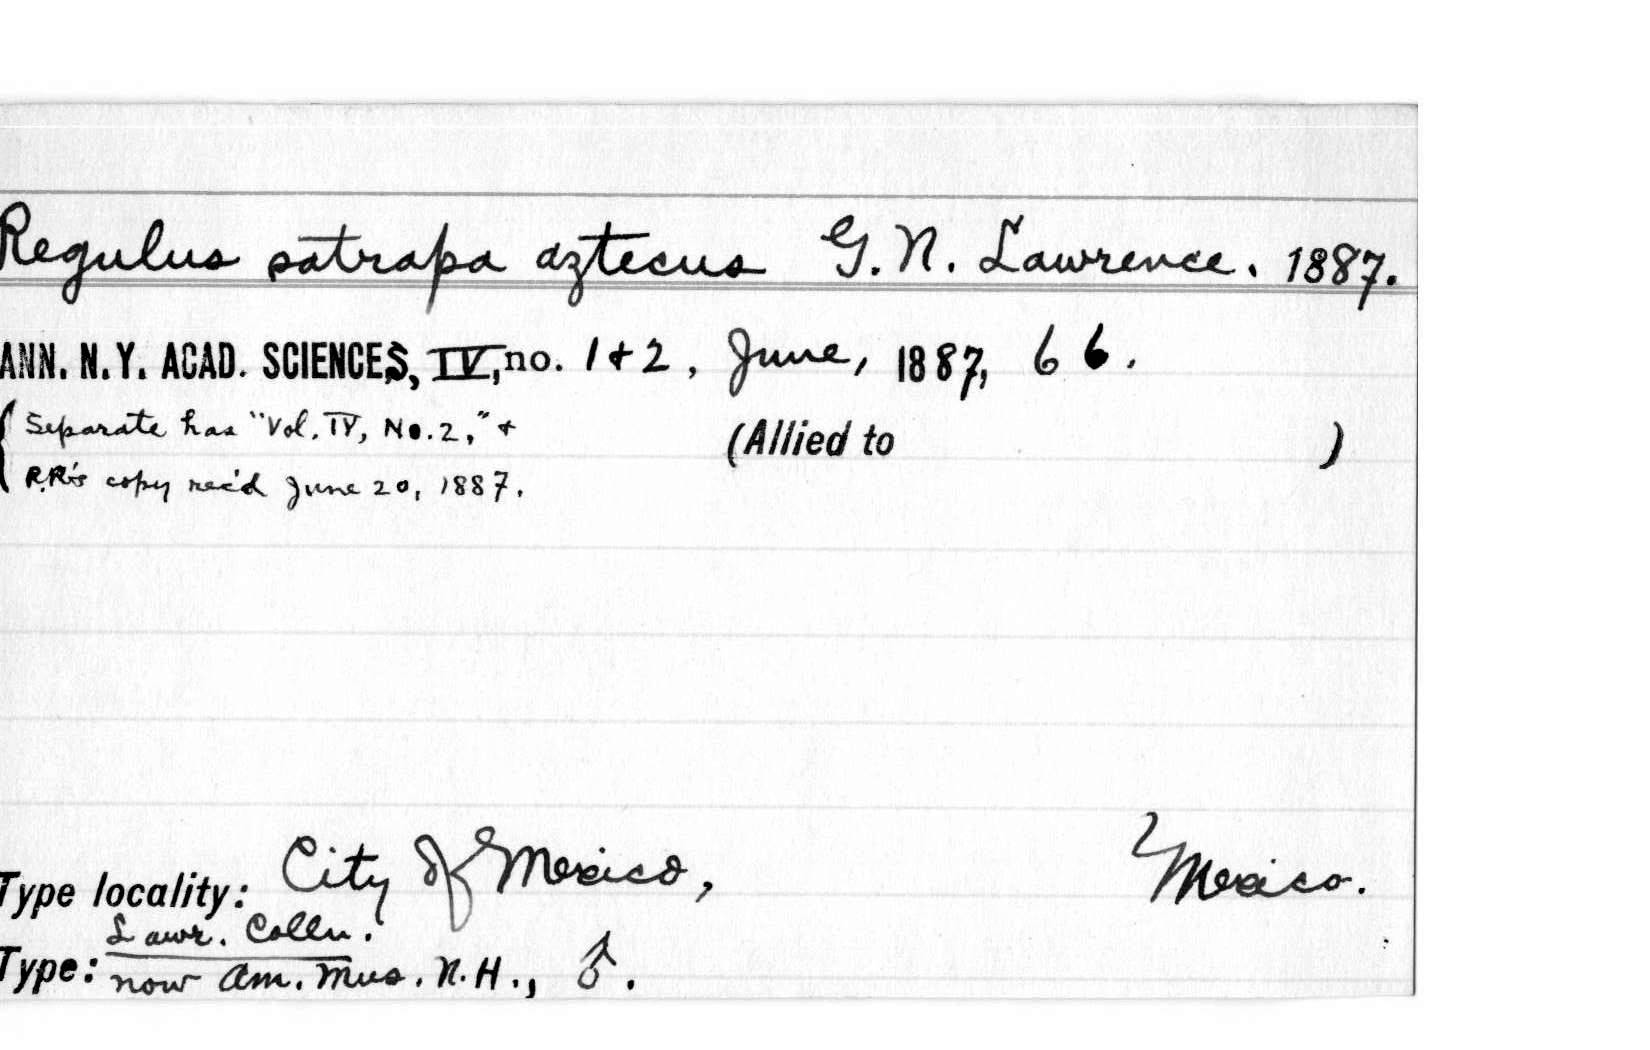 Regulus satrapa aztecus G. N. Lawrence. 1887.
ANN. N.Y. ACAD. SCIENCES, IV, no. 1+2, June, 1887, 66.
{ Separate has "Vol. IV, No. 2," +
R.R.'s copy rec'd June 20, 1887.
(Allied to )
Type locality: City of Mexico, Mexico.
Lawr. Colln.
Type: now Am. Mus. N.H., ♂.